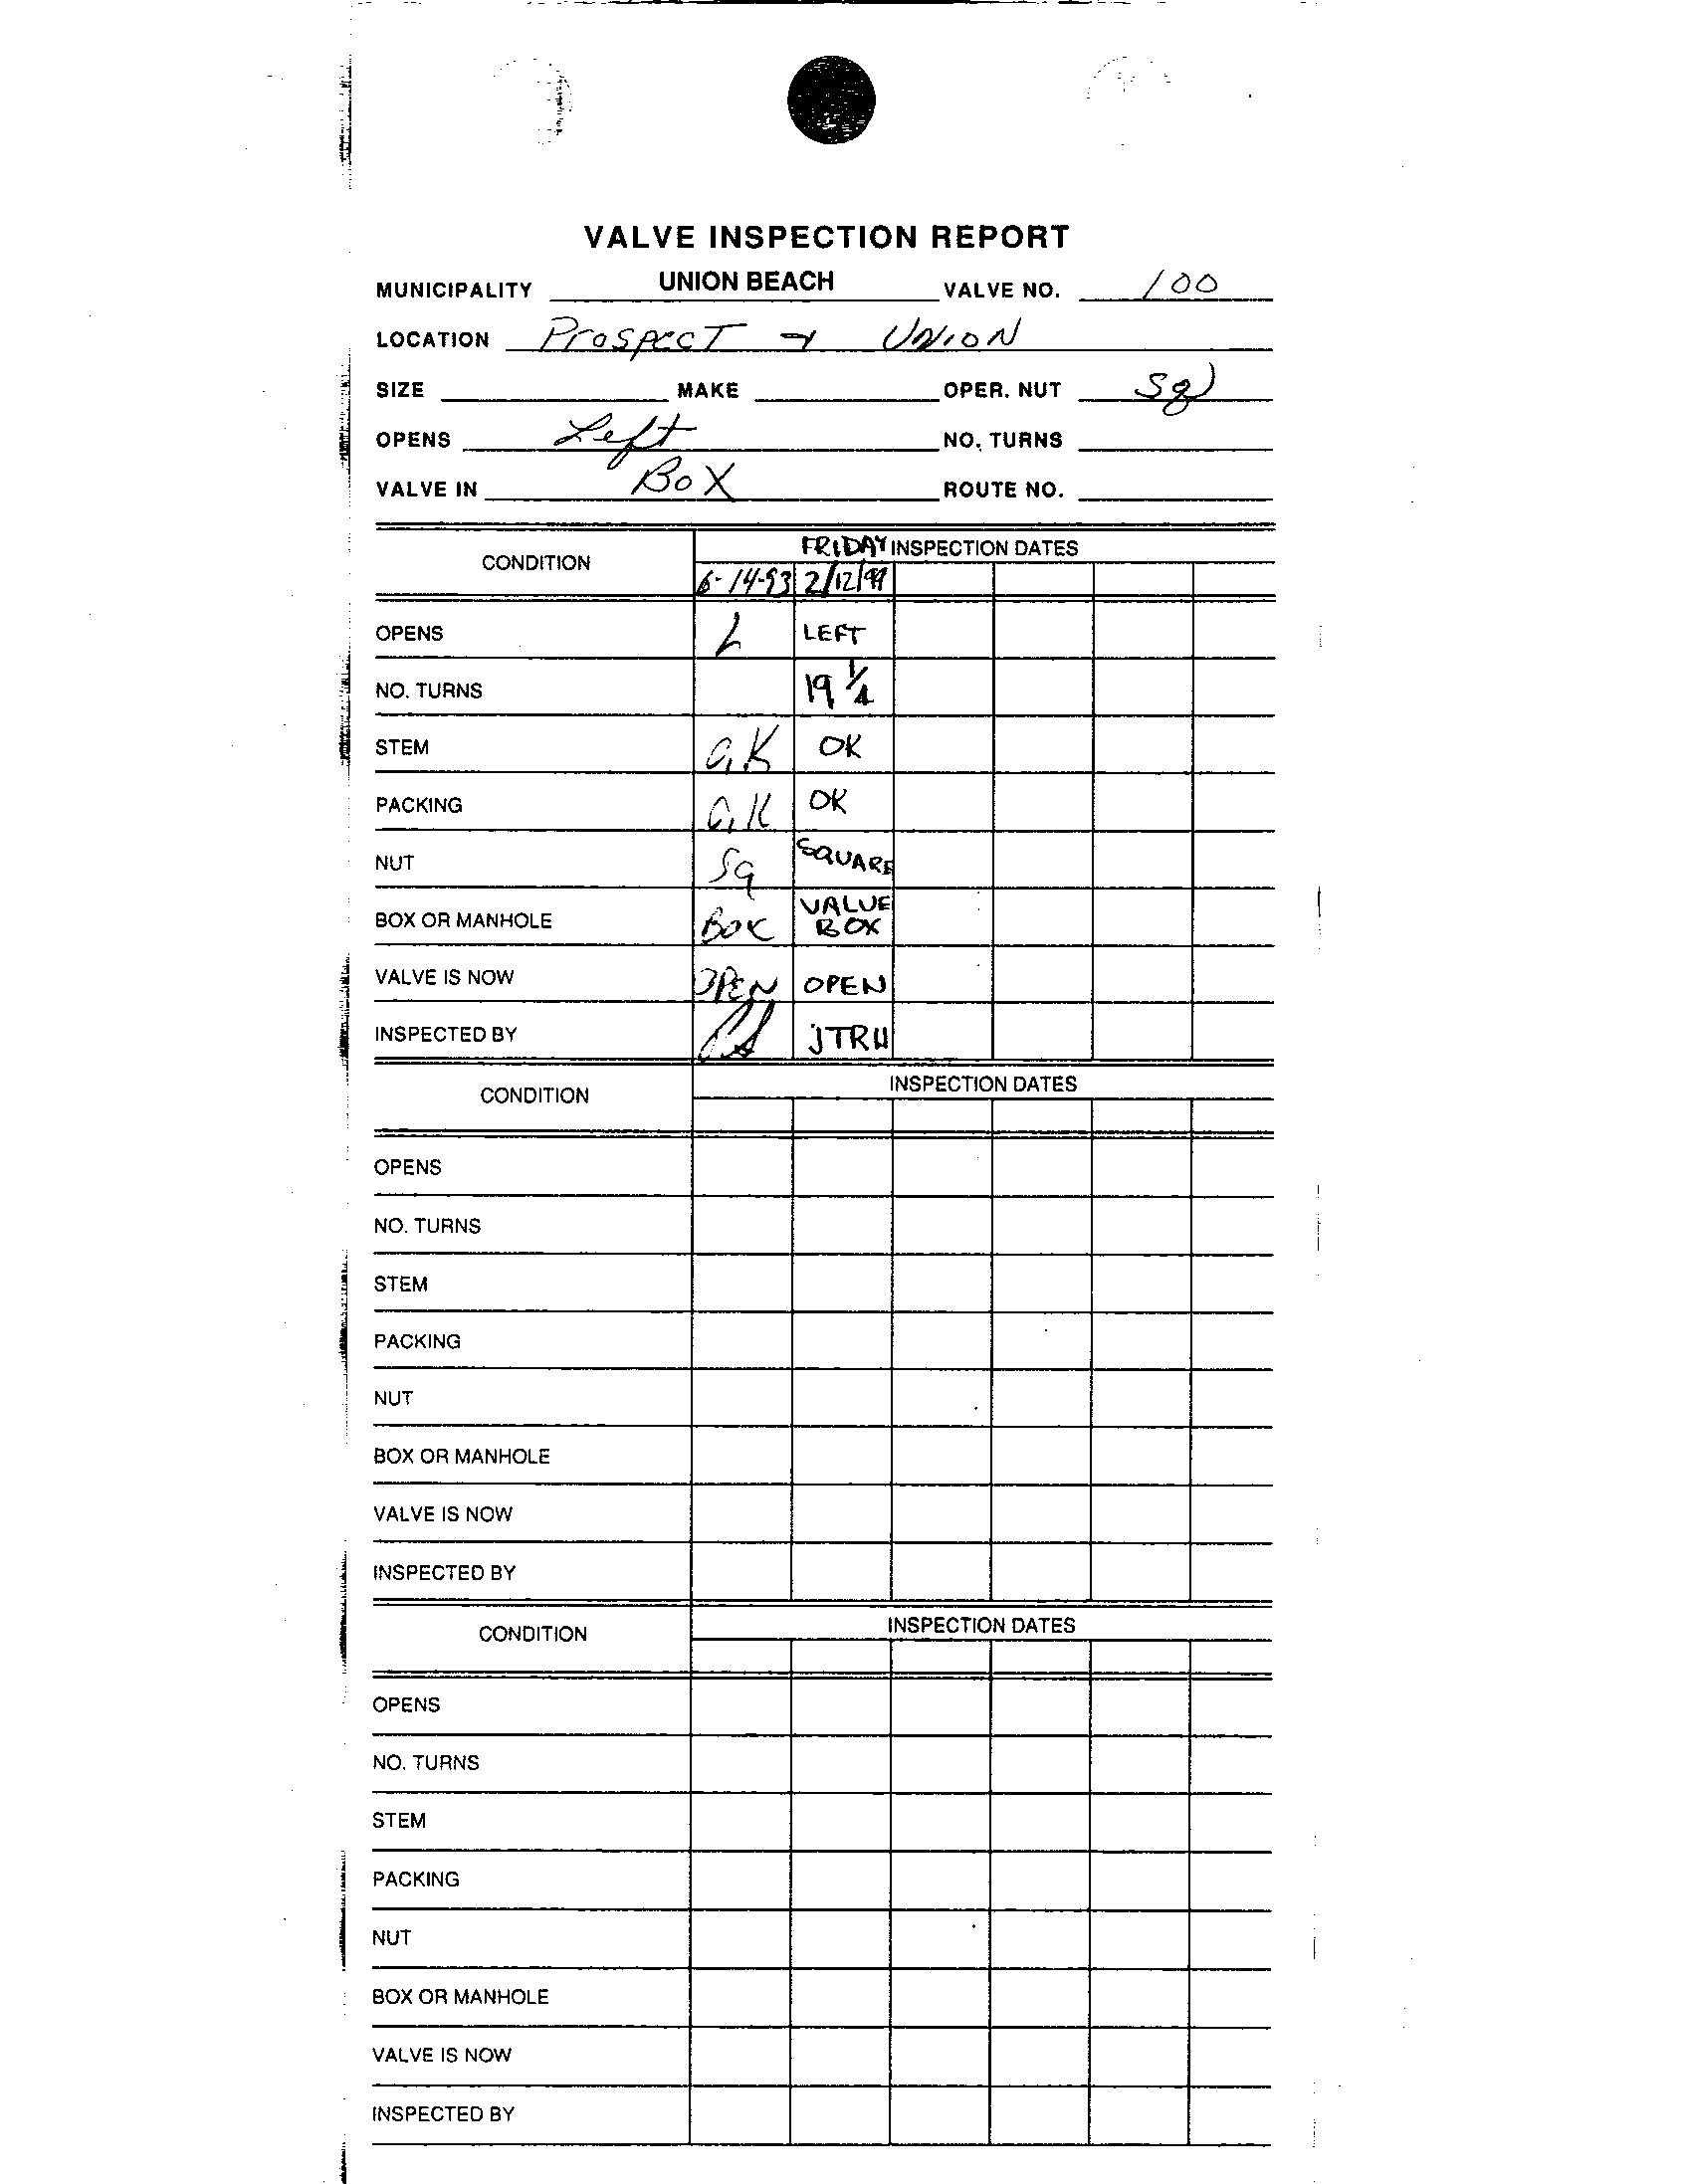 VALVE INSPECTION REPORT
MUNICIPALITY UNION BEACH VALVE NO. 100
LOCATION Prospect + UNION
SIZE MAKE OPER. NUT Sq
OPENS Left NO. TURNS
VALVE IN BOX ROUTE NO.
CONDITION FRIDAY INSPECTION DATES
6-14-93 2/12/99
OPENS L LEFT
NO. TURNS 19 1/4
STEM O.K OK
PACKING O.K OK
NUT Sq SQUARE
BOX OR MANHOLE Box VALVE BOX
VALVE IS NOW OPEN OPEN
INSPECTED BY
CONDITION INSPECTION DATES
OPENS
NO. TURNS
STEM
PACKING
NUT
BOX OR MANHOLE
VALVE IS NOW
INSPECTED BY
CONDITION INSPECTION DATES
OPENS
NO. TURNS
STEM
PACKING
NUT
BOX OR MANHOLE
VALVE IS NOW
INSPECTED BY